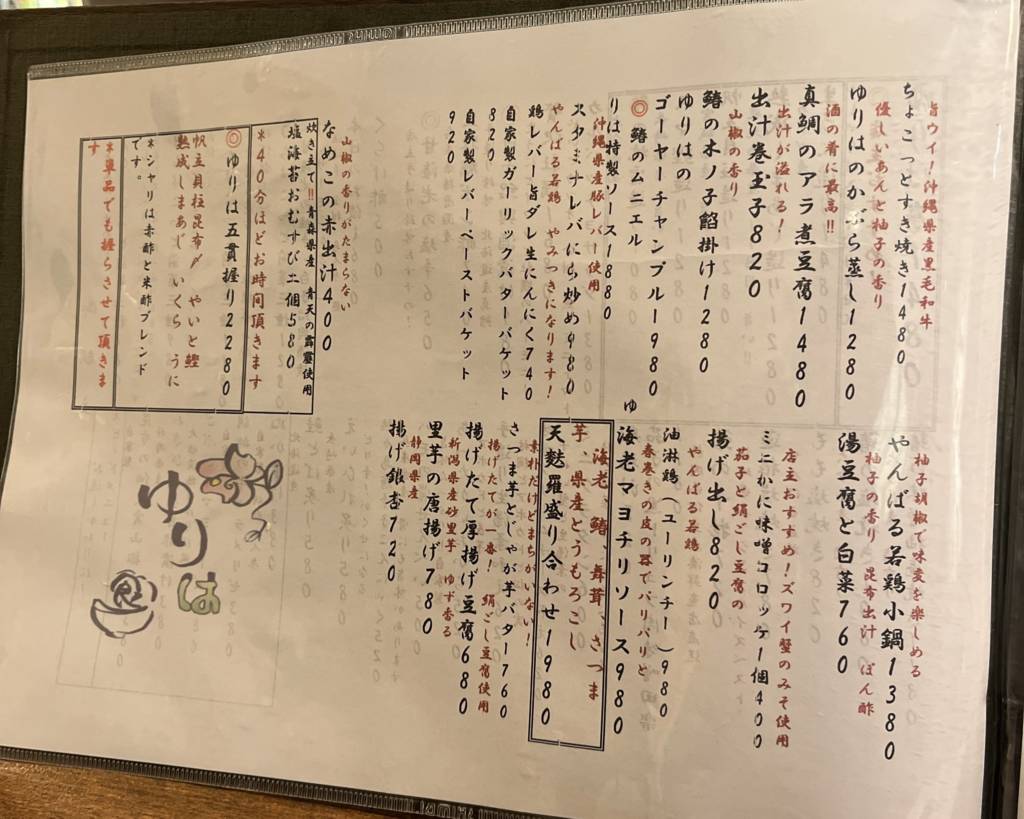 旨ウイ!沖縄県産黒毛和牛
ちょこっとすき焼き1480
優しいあんと柚子の香り
ゆりはのかぶら蒸し1280
酒の肴に最高!!
真鯛のアラ煮豆腐1480
出汁が溢れる!
出汁巻玉子820
山椒の香り
鰆の木ノ子餡掛け1280
ゆりはの
ゴーヤーチャンプル1980
◎鰆のムニエル
りは特製ソース1880
沖縄県産豚レバー使用
スタミナレバにら炒め980
やんばる若鶏 やみつきになります!
鶏レバー旨ダレ生にんにく740
自家製ガーリックバターバケット
820
自家製レバーペーストバケット
920
山椒の香りがたまらない
なめこの赤出汁400
炊き立て!!青森県産 青天の霹靂使用
塩海苔おむすび二個580
*40分ほどお時間頂きます
◎ゆりは五貫握り2280
帆立貝柱昆布〆 やいと鰹
熟成しまあじ いくら うに
*シャリは赤酢と米酢ブレンド
です。
*単品でも握らさせて頂きま
す
柚子胡椒で味変を楽しめる
やんばる若鶏小鍋1380
柚子の香り 昆布出汁 ぽん酢
湯豆腐と白菜760
店主おすすめ!ズワイ蟹のみそ使用
ミニかに味噌コロッケ1個400
茄子と絹ごし豆腐の
揚げ出し820
やんばる若鶏
油淋鶏(ユーリンチー)980
春巻きの皮の器でパリパリと
ゆ
海老マヨチリソース980
海老、鰆、舞茸、さつま
芋、県産とうもろこし
天麩羅盛り合わせ1980
素朴だけどまちがいない!
さつま芋とじゃが芋バター760
揚げたてが一番! 絹ごし豆腐使用
揚げたて厚揚げ豆腐680
新潟県産砂里芋 ゆず香る
里芋の唐揚げ780
静岡県産
揚げ銀杏720
ゆりは